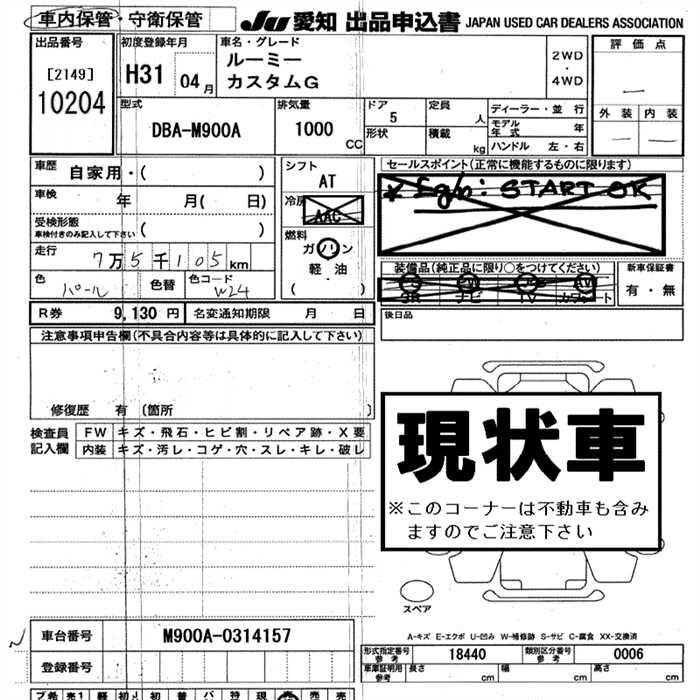 車内保管・守衛保管
JU 愛知 出品申込書 JAPAN USED CAR DEALERS ASSOCIATION
出品番号
[2149]
10204
初度登録年月
H31 04月
車名・グレード
ルーミー
カスタムG
2WD
・
4WD
評価点
外装 内装
型式
DBA-M900A
排気量
1000
CC
ドア
5
形状
定員
人
積載
kg
ディーラー・並行
モデル
年式 年
ハンドル 左・右
車歴 自家用・( )
車検 年 月( 日)
受検形態
車検付きのみ記入して下さい ( )
走行 7万5千105km
色 パール 色替 色コード W24
シフト
AT
冷房
AAC
燃料
ガソリン
軽・油
( )
セールスポイント(正常に機能するものに限ります)
* Eg/b: START OK
装備品(純正品に限り○をつけてください)
SR ナビ TV
新車保証書
有・無
R券 9,130円 名変通知期限 月 日
後日品
注意事項申告欄(不具合内容等は具体的に記入して下さい)
修復歴 有 〔箇所 〕
検査員
記入欄
FW キズ・飛石・ヒビ割・リペア跡・X要
内装 キズ・汚レ・コゲ・穴・スレ・キレ・破レ
現状車
※このコーナーは不動車も含み
ますのでご注意下さい
スペア
A-キズ E-エクボ U-凹み W-補修跡 S-サビ C-腐食 XX-交換済
車台番号 M900A-0314157
登録番号
形式指定番号
参考 18440
類別区分番号
参考 0006
車庫証明用
参考 長さ cm 幅 cm 高さ cm